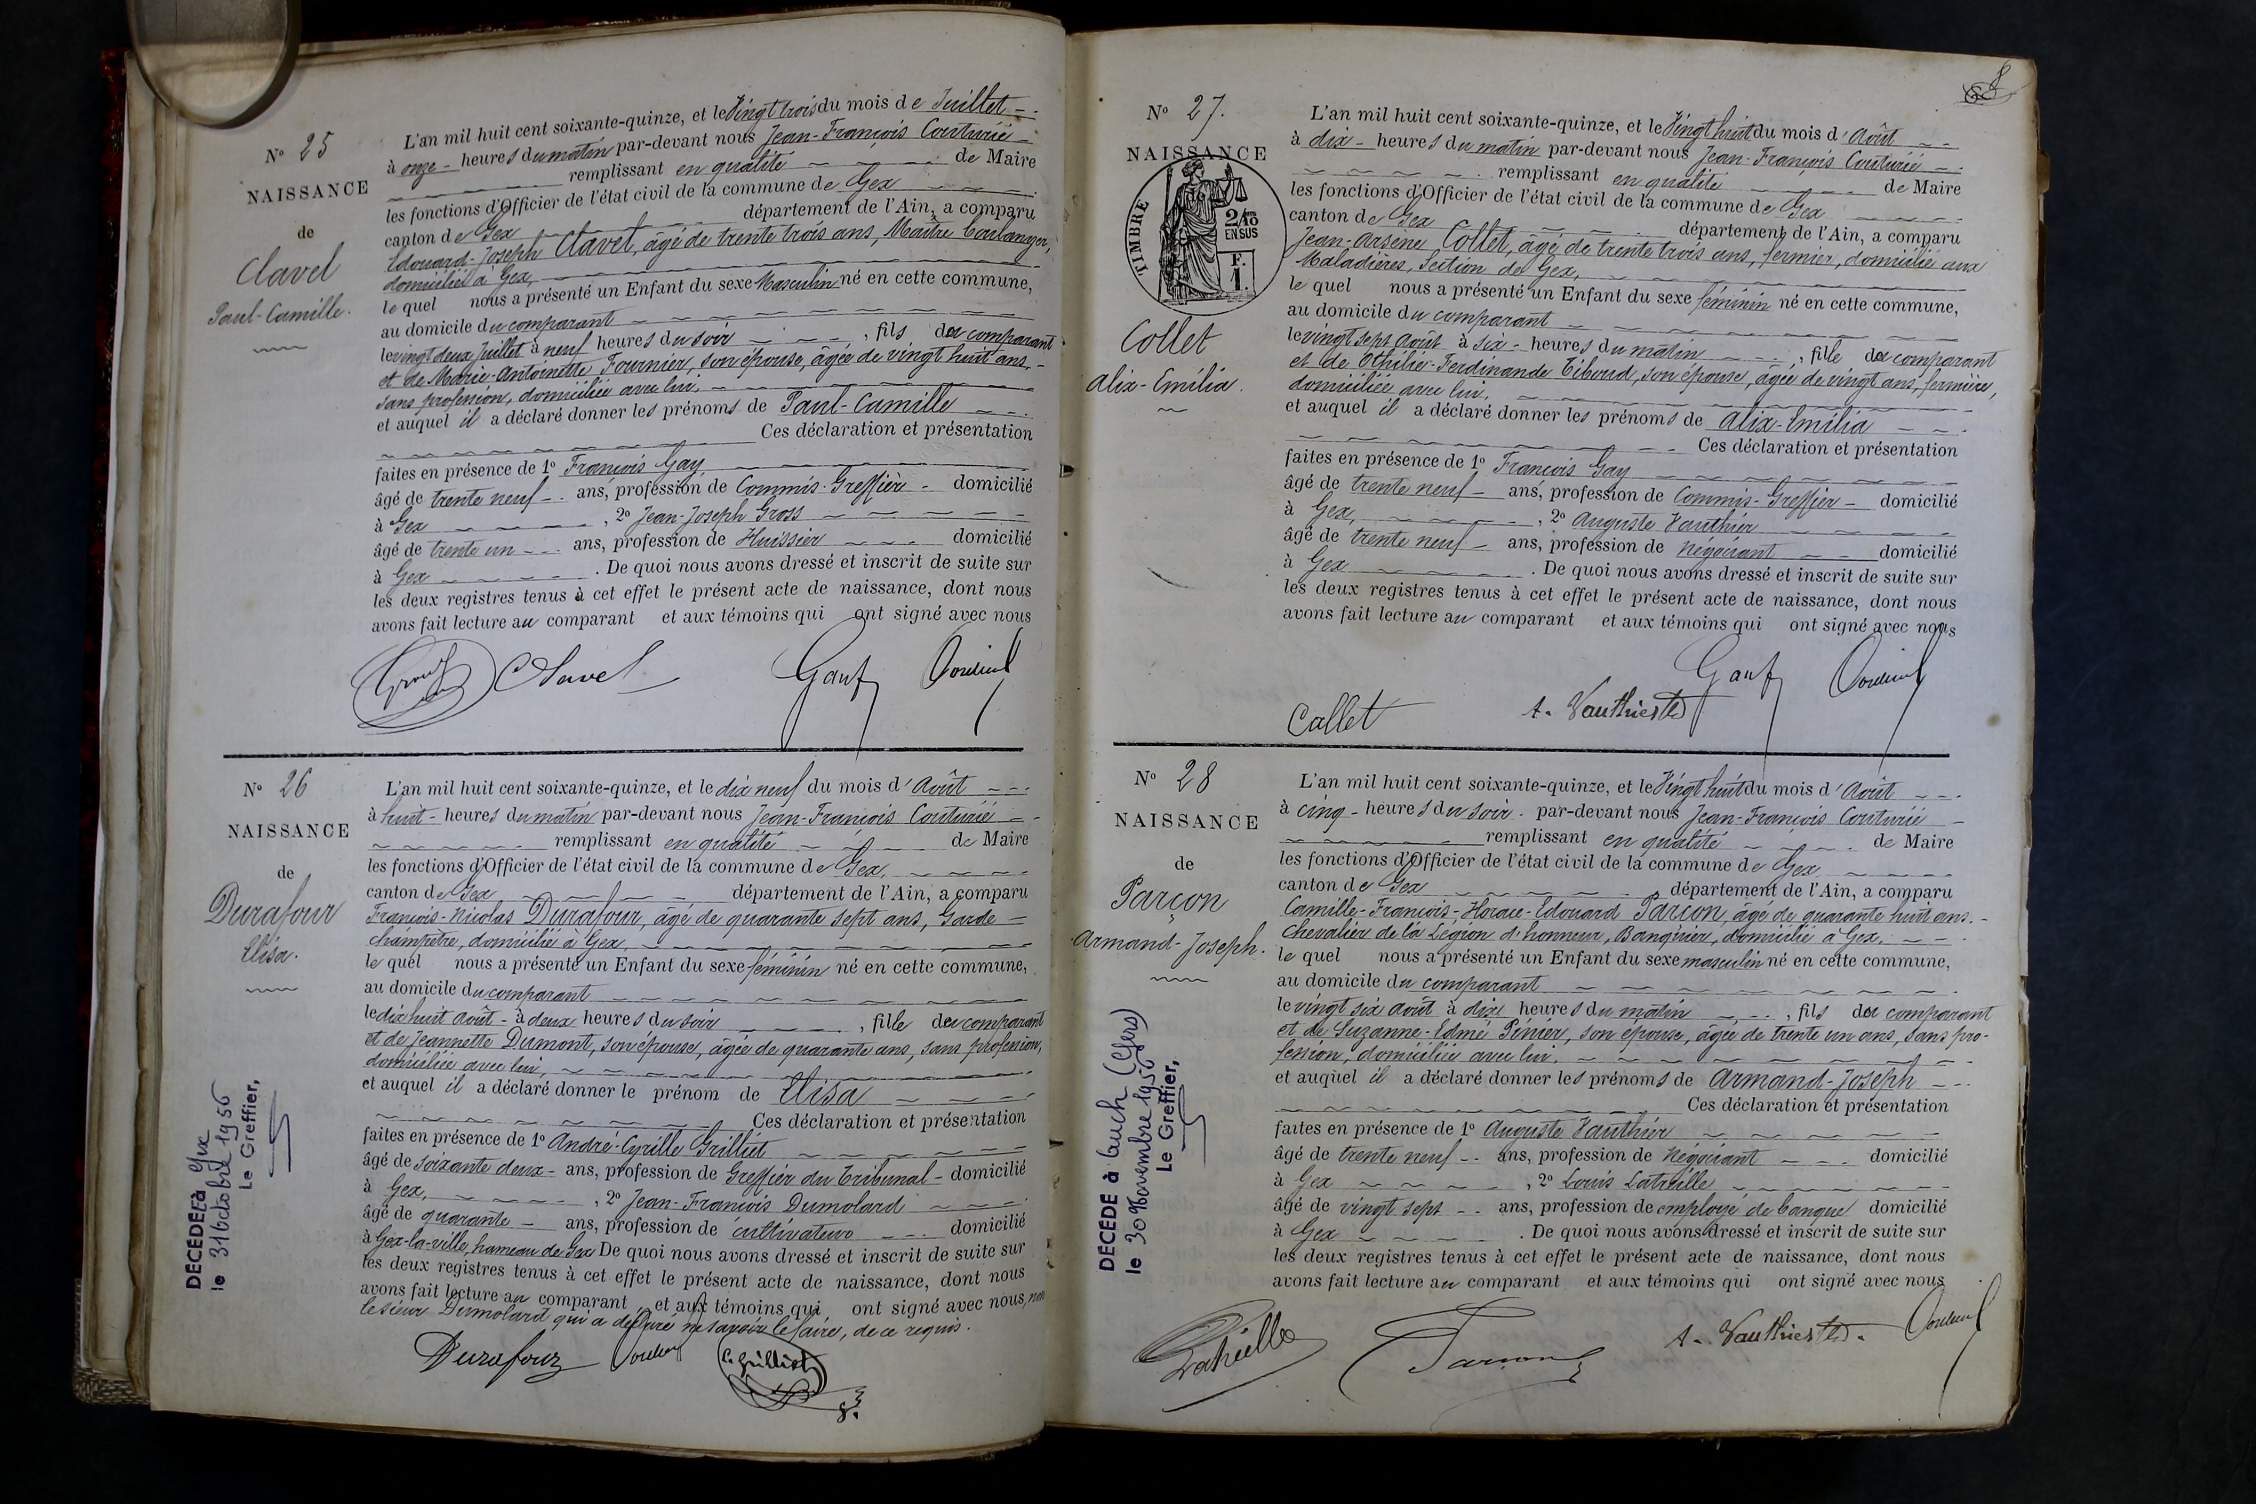 N° 25
NAISSANCE
de
Clavel
Paul-Camille.
L'an mil huit cent soixante-quinze, et le Vingt trois du mois de Juillet
à onze heures du matin par-devant nous Jean-François Couturié
remplissant en qualité de Maire
les fonctions d'Officier de l'état civil de la commune de Gex
canton de Gex département de l'Ain, a comparu
Edouard-Joseph Clavel, âgé de trente trois ans, Maître boulanger,
domicilié à Gex,
le quel nous a présenté un Enfant du sexe Masculin né en cette commune,
au domicile du comparant
le vingt deux Juillet à neuf heures du soir, fils du comparant
et de Marie-Antoinette Fournier, son épouse, âgée de vingt huit ans,
sans profession, domiciliée avec lui,
et auquel il a déclaré donner les prénoms de Paul-Camille
Ces déclaration et présentation
faites en présence de 1° François Gay
âgé de trente neuf ans, profession de Commis-Greffier domicilié
à Gex, 2° Jean-Joseph Gross
âgé de trente un ans, profession de Huissier domicilié
à Gex. De quoi nous avons dressé et inscrit de suite sur
les deux registres tenus à cet effet le présent acte de naissance, dont nous
avons fait lecture au comparant et aux témoins qui ont signé avec nous
Clavel
N° 26
NAISSANCE
de
Durafour
Elisa.
DÉCÉDÉE à Gex
le 31 Octobre 1956
Le Greffier,
L'an mil huit cent soixante-quinze, et le dix neuf du mois d'Août
à huit heures du matin par-devant nous Jean-François Couturié
remplissant en qualité de Maire
les fonctions d'Officier de l'état civil de la commune de Gex,
canton de Gex département de l'Ain, a comparu
François-Nicolas Durafour, âgé de quarante sept ans, Garde
champêtre, domicilié à Gex,
le quel nous a présenté un Enfant du sexe féminin né en cette commune,
au domicile du comparant
le dix huit août à deux heures du soir, fille du comparant
et de Jeannette Dumont, son épouse, âgée de quarante ans, sans profession,
domiciliée avec lui,
et auquel il a déclaré donner le prénom de Elisa
Ces déclaration et présentation
faites en présence de 1° André-Cyrille Grilliet
âgé de soixante deux ans, profession de Greffier du tribunal domicilié
à Gex, 2° Jean-François Dumolard
âgé de quarante ans, profession de cultivateur domicilié
à Gex-la-ville, hameau de Gex De quoi nous avons dressé et inscrit de suite sur
les deux registres tenus à cet effet le présent acte de naissance, dont nous
avons fait lecture au comparant et aux témoins qui ont signé avec nous, non
le sieur Dumolard qui a déclaré ne savoir le faire, de ce requis.
Durafour
N° 27.
NAISSANCE
TIMBRE
2/10 EN SUS
F.
1.
Collet
Alix-Emilia.
L'an mil huit cent soixante-quinze, et le Vingt huit du mois d'Août
à dix heures du matin par-devant nous Jean-François Couturié
remplissant en qualité de Maire
les fonctions d'Officier de l'état civil de la commune de Gex
canton de Gex département de l'Ain, a comparu
Jean-Arsène Collet, âgé de trente trois ans, fermier, domicilié aux
Maladières, Section de Gex,
le quel nous a présenté un Enfant du sexe féminin né en cette commune,
au domicile du comparant
le vingt sept Août à six heures du matin, fille du comparant
et de Othilie-Ferdinande Tiboud, son épouse, âgée de vingt ans, fermière,
domiciliée avec lui,
et auquel il a déclaré donner les prénoms de Alix-Emilia
Ces déclaration et présentation
faites en présence de 1° François Gay
âgé de trente neuf ans, profession de Commis-Greffier domicilié
à Gex, 2° Auguste Vauthier
âgé de trente neuf ans, profession de négociant domicilié
à Gex. De quoi nous avons dressé et inscrit de suite sur
les deux registres tenus à cet effet le présent acte de naissance, dont nous
avons fait lecture au comparant et aux témoins qui ont signé avec nous
Collet
A. Vauthier
N° 28
NAISSANCE
de
Parçon
Armand-Joseph.
DÉCÉDÉ à Auch (Gers)
le 30 Novembre 1950
Le Greffier,
L'an mil huit cent soixante-quinze, et le Vingt huit du mois d'Août
à cinq heures du soir par-devant nous Jean-François Couturié
remplissant en qualité de Maire
les fonctions d'Officier de l'état civil de la commune de Gex
canton de Gex département de l'Ain, a comparu
Camille-François-Horace-Edouard Parçon, âgé de quarante huit ans,
Chevalier de la Légion d'honneur, Banquier, domicilié à Gex,
le quel nous a présenté un Enfant du sexe masculin né en cette commune,
au domicile du comparant
le vingt six août à dix heures du matin, fils du comparant
et de Suzanne-Edmé Pénier, son épouse, âgée de trente un ans, sans pro-
fession, domiciliée avec lui,
et auquel il a déclaré donner les prénoms de Armand-Joseph
Ces déclaration et présentation
faites en présence de 1° Auguste Vauthier
âgé de trente neuf ans, profession de négociant domicilié
à Gex, 2° Louis Latreille
âgé de vingt sept ans, profession de employé de banque domicilié
à Gex. De quoi nous avons dressé et inscrit de suite sur
les deux registres tenus à cet effet le présent acte de naissance, dont nous
avons fait lecture au comparant et aux témoins qui ont signé avec nous
A. Vauthier